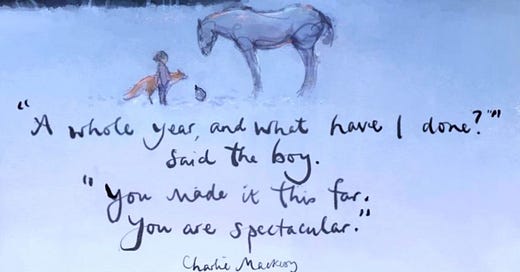 "A whole year, and what have I done?""
said the boy.
"You made it this far.
You are spectacular."
Charlie Mackesy